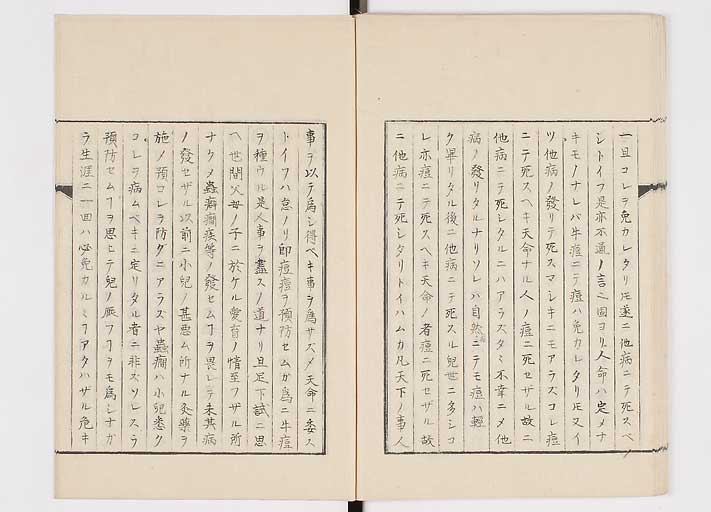 一旦コレヲ免カレタリ𪜈遂ニ他病ニテ死スベ
シトイフ是亦不通ノ言ニ固ヨリ人命ハ定メナ
キモノナレバ牛痘ニテ痘ハ免カレタリ𪜈又イ
ツ他病ノ發リテ死スマシキニモアラズコレ痘
ニテ死スヘキ天命ナル人ノ痘ニ死セザル故ニ
他病ニテ死シタルニハアラズタヾ不幸ニメ他
病ノ發リタルナリソレハ自然痘ニテモ痘ハ輕
ク畢リタル後ニ他病ニテ死スル兒世ニ多シコ
レ亦痘ニテ死スヘキ天命ノ者痘ニ死セザル故
ニ他病ニテ死シタリトイハムカ凡天下ノ事人
事ヲ以テ為シ得ベキ事ヲ為サズメ天命ニ委ス
トイフハ怠ノリ即痘瘡ヲ預防セムガ為ニ牛痘
ヲ種ウル是人事ヲ盡スノ道ナリ且足下試ニ思
ヘ世間父母ノ子ニ於ケル愛育ノ情至ラザル所
ナクメ蟲癖癇疾等ノ發セムヿヲ畏レテ未其病
ノ發セザル以前ニ小兒ノ甚悪ム所ナル灸藥ヲ
施ノ預コレヲ防グニアラズヤ蟲癇ハ小兒悉ク
コレヲ病ムベキニ定リタル者ニ非ズソレスラ
預防セムヿヲ思ヒテ兒ノ厭フヿヲモ為シナガ
ラ生涯ニ一回ハ必免カルヽヿアタハザル危キ